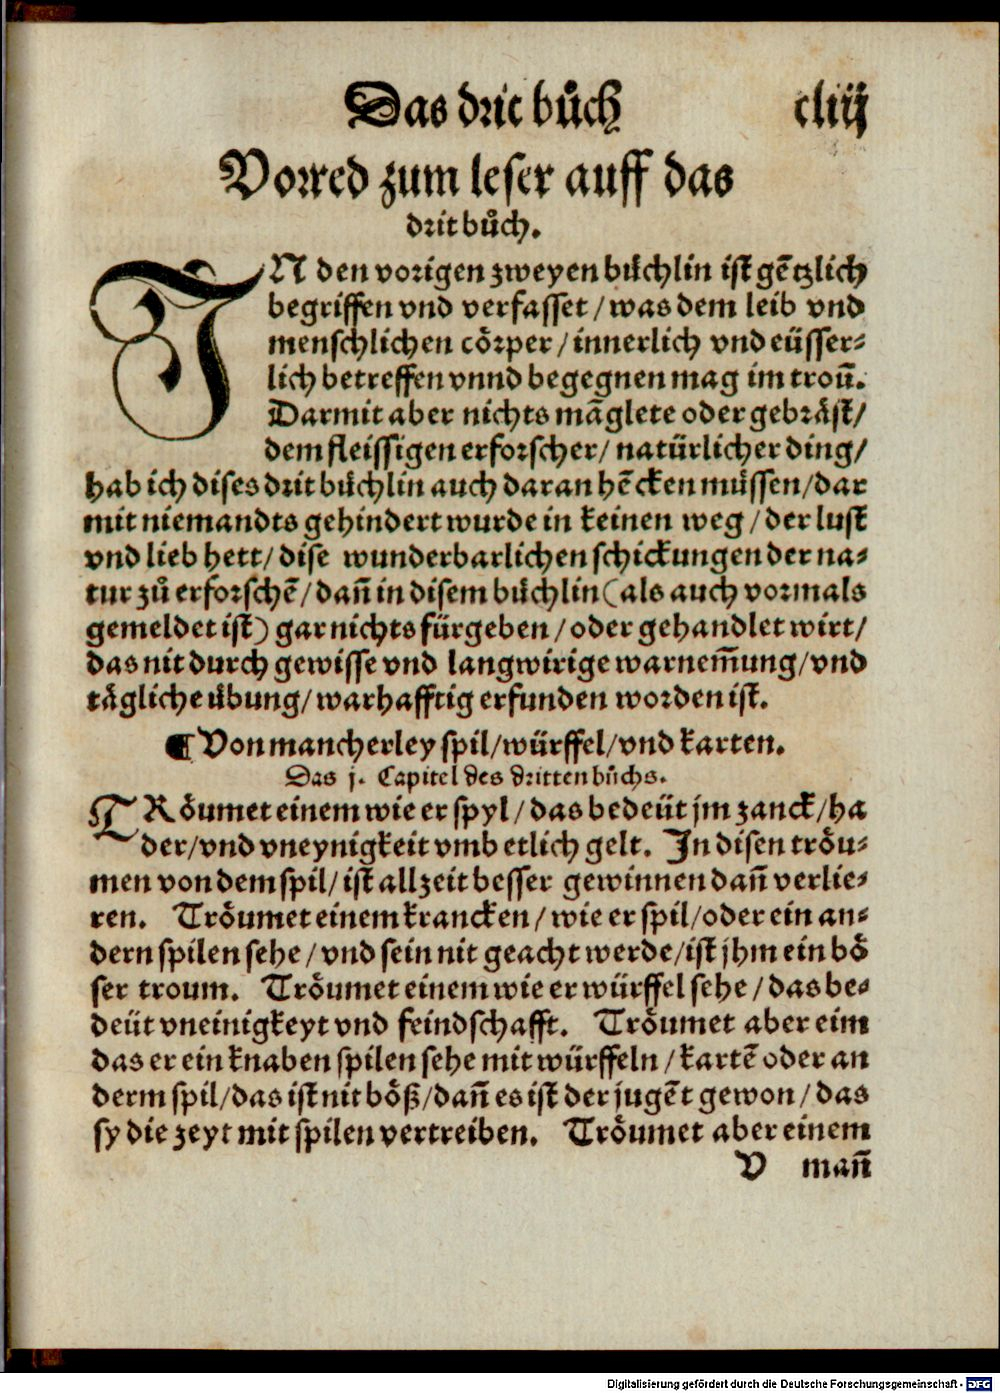 Das drit bůch cliij
Vorred zum leser auff das
drit bůch.
IN den vorigen zweyen bůchlin ist gẽtzlich
begriffen vnd verfasset / was dem leib vnd
menschlichen cörper / innerlich vnd eüsser-
lich betreffen vnnd begegnen mag im troum̄.
Darmit aber nichts mãglete oder gebråst /
dem fleissigen erforscher / natürlicher ding /
hab ich dises drit bůchlin auch daran hẽcken müssen / dar
mit niemandts gehindert wurde in keinen weg / der lust
vnd lieb hett / dise wunderbarlichen schickungen der na-
tur zů erforschẽ / dañ in disem bůchlin (als auch vormals
gemeldet ist) gar nichts fürgeben / oder gehandlet wirt /
das nit durch gewisse vnd langwirige warnem̄ung / vnd
tägliche übung / warhafftig erfunden worden ist.
¶ Von mancherley spil / würffel / vnd karten.
Das j. Capitel des dritten bůchs.
TRöumet einem wie er spyl / das bedeüt jm zanck / ha
der / vnd vneynigkeit vmb etlich gelt. In disen tröu-
men von dem spil / ist allzeit besser gewinnen dañ verlie-
ren. Tröumet einem krancken / wie er spil / oder ein an-
dern spilen sehe / vnd sein nit geacht werde / ist jhm ein bö
ser troum. Tröumet einem wie er würffel sehe / das be-
deüt vneinigkeyt vnd feindschafft. Tröumet aber eim
das er ein knaben spilen sehe mit würffeln / kartẽ oder an
derm spil / das ist nit böß / dañ es ist der jugẽt gewon / das
sy die zeyt mit spilen vertreiben. Tröumet aber einem
V mañ
Digitalisierung gefördert durch die Deutsche Forschungsgemeinschaft - DFG